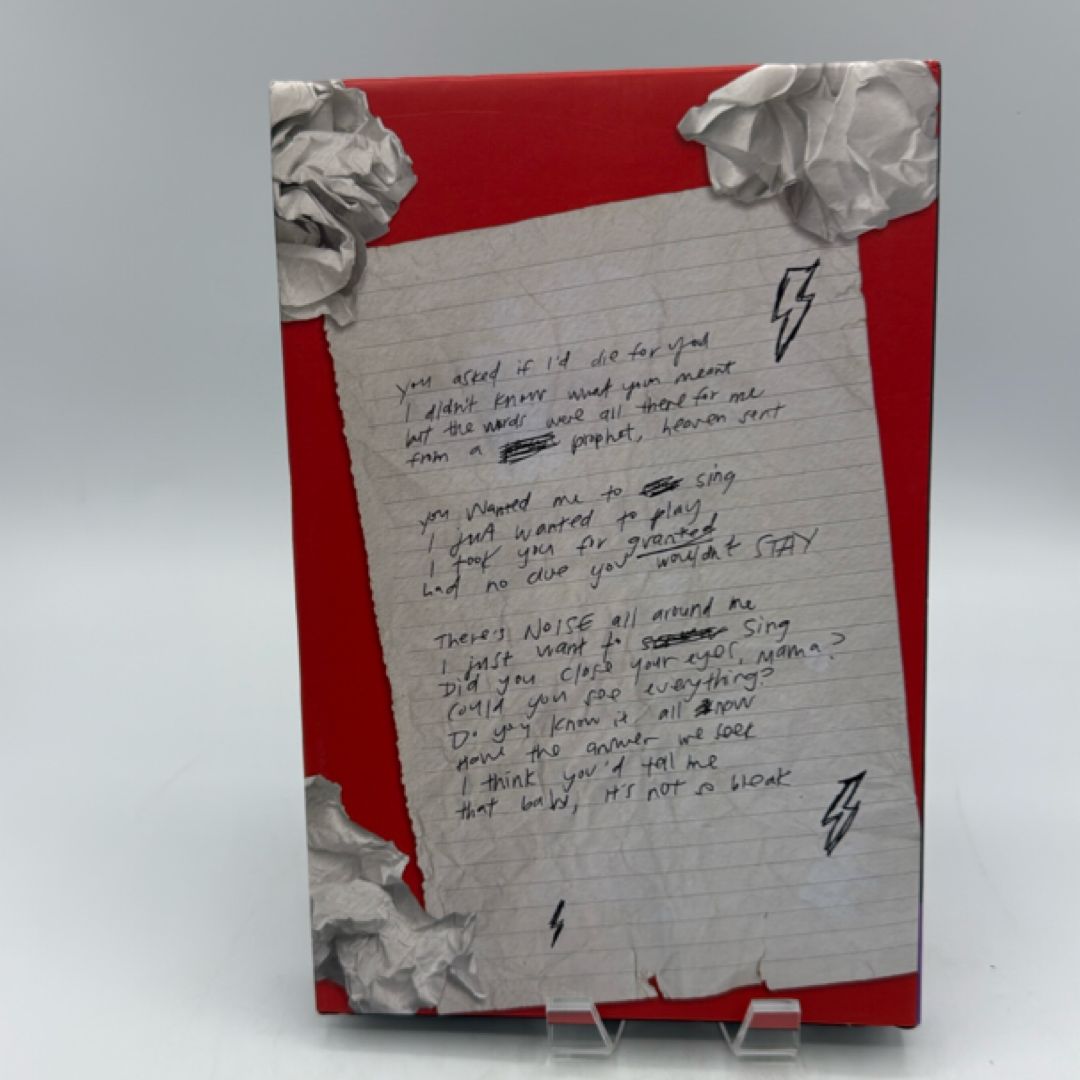 you asked if I'd die for you
I didn't know what you meant
but the words were all there for me
from a prophet, heaven sent
you wanted me to sing
I just wanted to play
I took you for granted
had no clue you wouldn't STAY
There's NOISE all around me
I just want to Sing
Did you close your eyes, Mama?
Could you see everything?
Do you know it all now
Have the answer we seek
I think you'd tell me
that baby, it's not so bleak